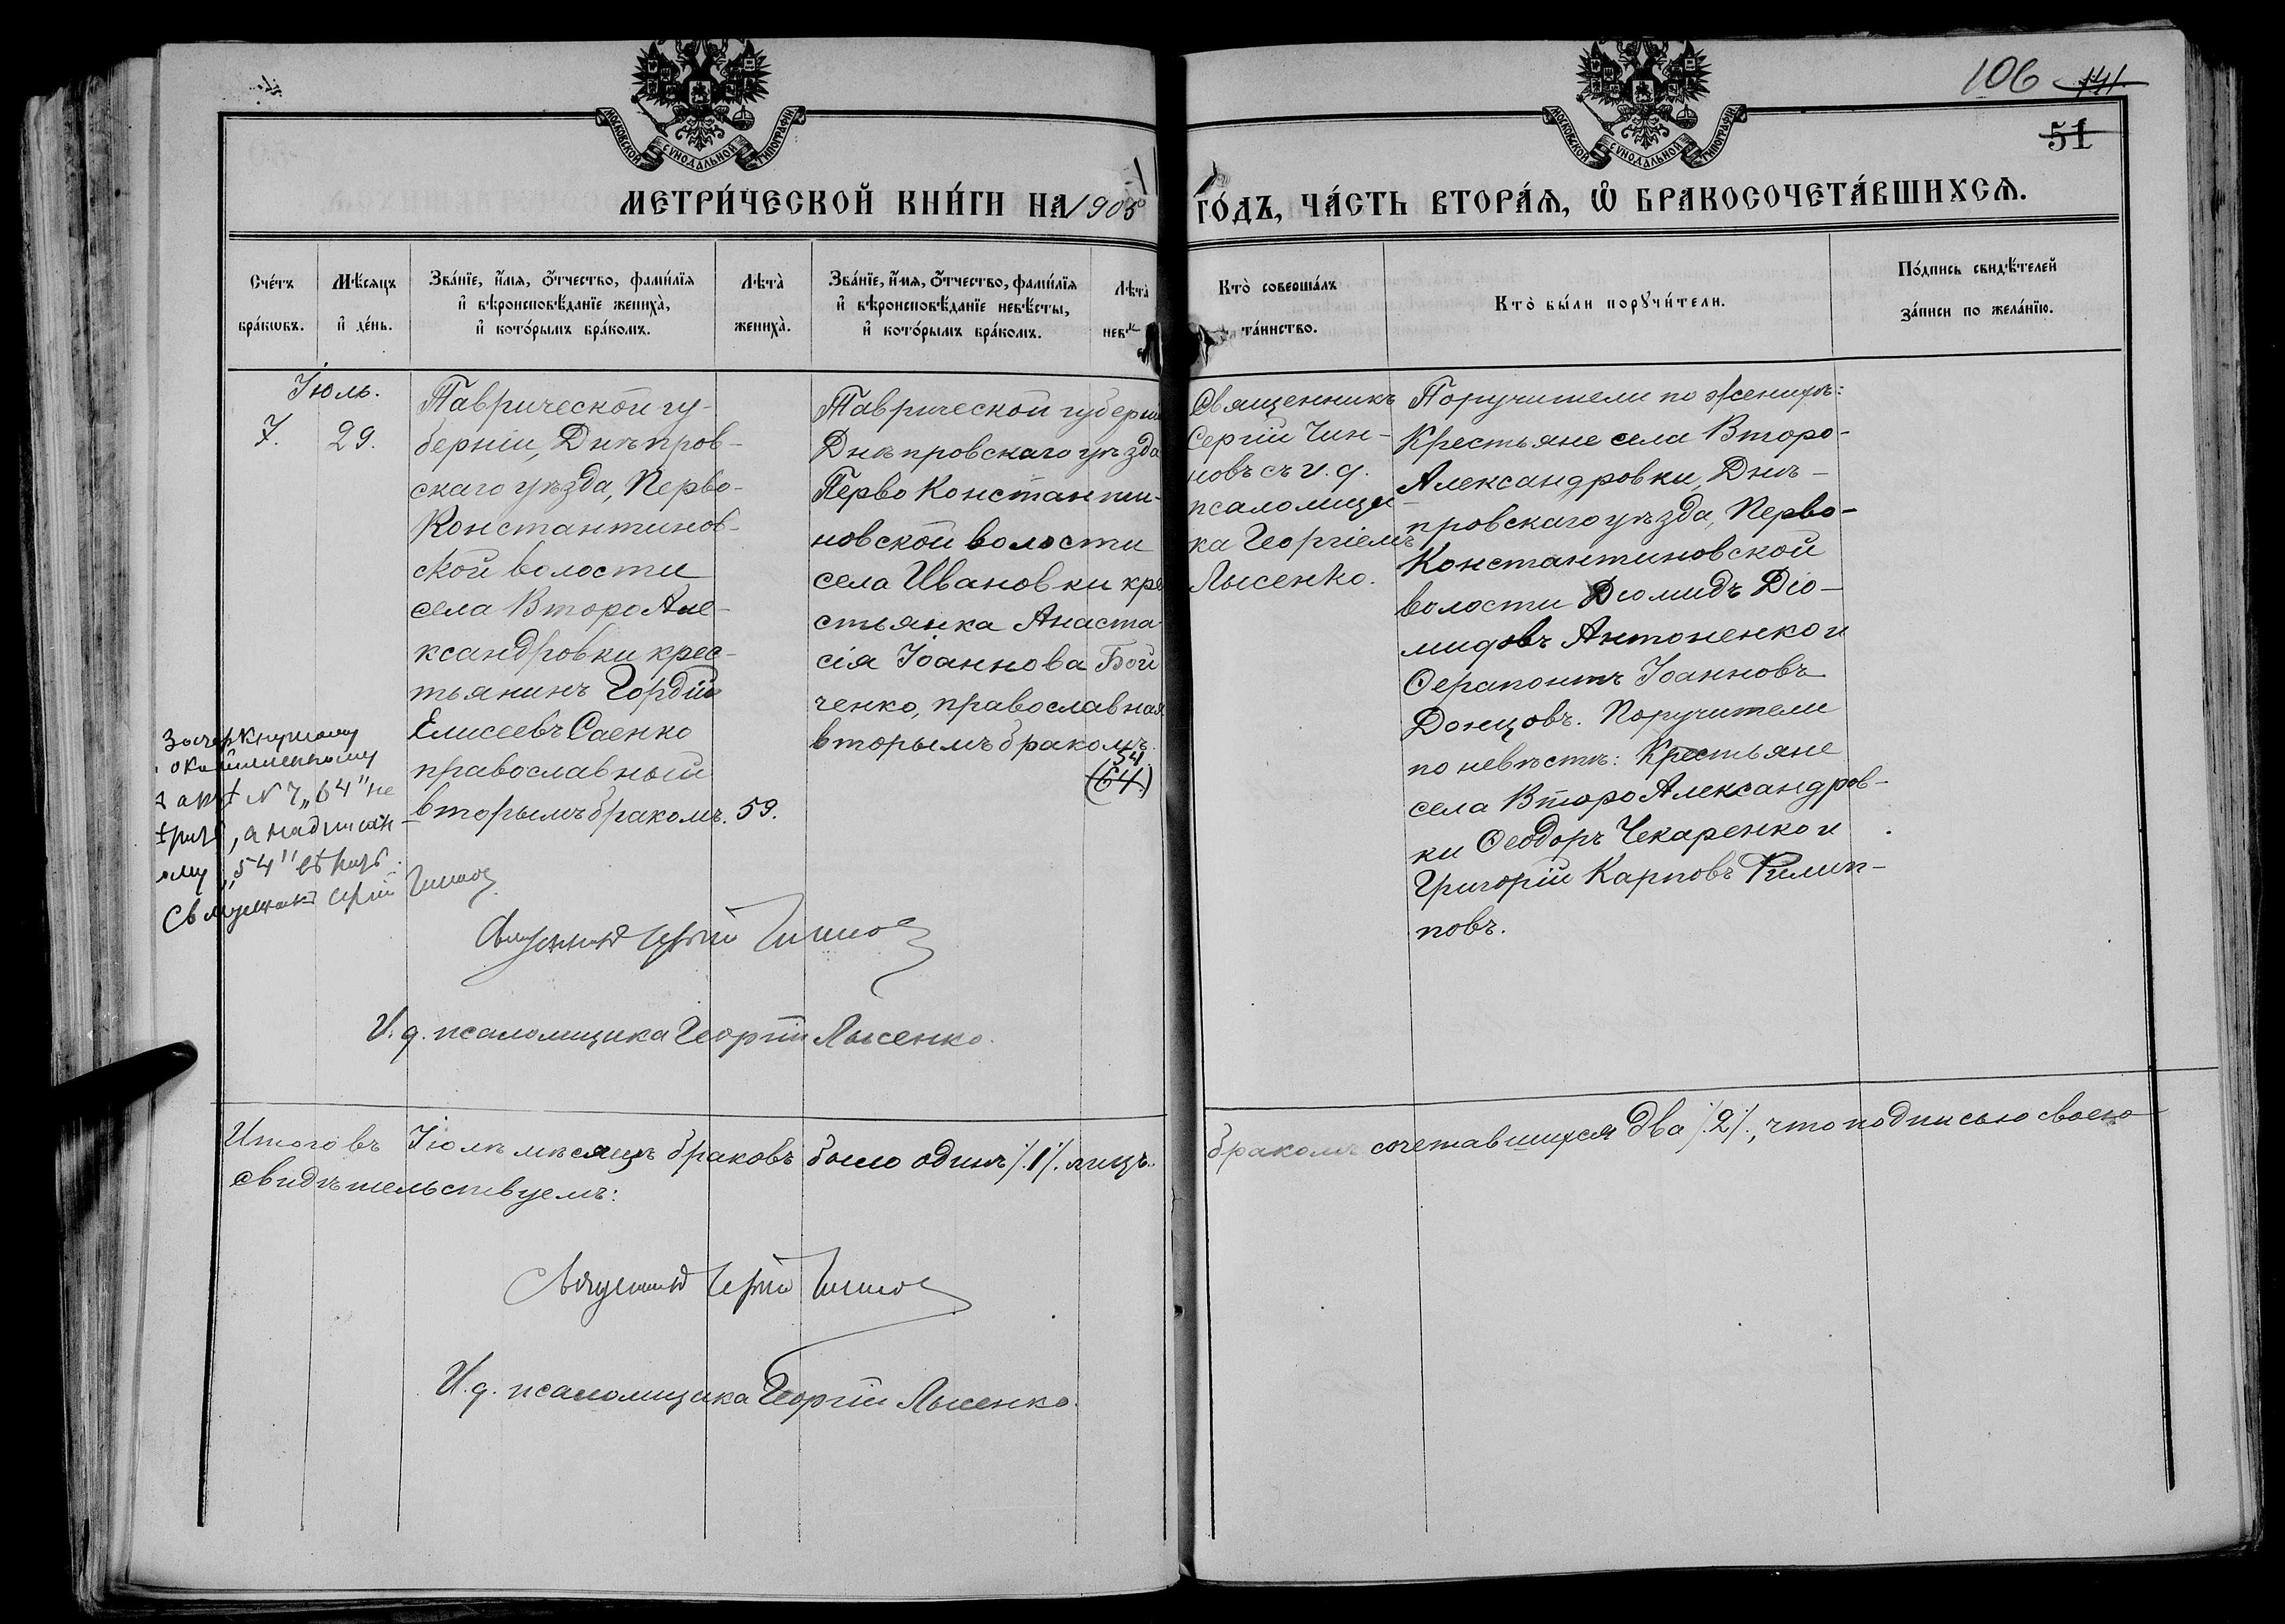 106 141
51
МОСКОВСКОЙ СѴНОДАЛЬНОЙ ТИПОГРАФІИ
МОСКОВСКОЙ СѴНОДАЛЬНОЙ ТИПОГРАФІИ
МЕТРИ́ЧЕСКОЙ КНИ́ГИ НА 1905 ГО́ДЪ, ЧА́СТЬ ВТОРА́Ѧ, Ѽ БРАКОСОЧЕТА́ВШИХСѦ.
Сче́тъ
бра́кѡвъ.
Мѣ́сяцъ
и҆ де́нь.
Зва́нїе, и҆́мя, ѻ҆́тчество, фамѝлїя
и҆ вѣроисповѣ́данїе жениха̀,
и҆ кото́рымъ бра́комъ.
Лѣта̀
жениха̀.
Зва́нїе, и҆́мя, ѻ҆́тчество, фамѝлїя
и҆ вѣроисповѣ́данїе невѣ́сты,
и҆ кото́рымъ бра́комъ.
Лѣта̀
нев
Кто̀ соверша́лъ
та́инство.
Кто̀ бы́ли порꙋчи́тели.
По́дпись свидѣ́телей
за́писи по жела́нїю.
Іюль.
7.
29.
Таврической гу-
берніи, Днѣпров-
скаго уѣзда, Перво-
Константинов-
ской волости
села ВтороАле-
ксандровки крес-
тьянинъ Гордій
Елисеевъ Саенко
православный
вторымъ бракомъ.
59.
Таврической губерніи
Днѣпровскаго уѣзда
Перво Константи-
новской волости
села Ивановки кре
стьянка Анаста
сія Іоаннова Бой
ченко, православная
вторымъ бракомъ.
54
(64)
Священникъ
Сергій Чин-
новъ съ и. д.
псаломщи-
ка Георгіемъ
Лысенко.
Поручители по женихѣ:
Крестьяне села Второ-
Александровки, Днѣ-
провскаго уѣзда, Перво-
Константиновской
волости Діомидъ Діо-
мидовъ Антоненко и
Ѳерапонтъ Іоанновъ
Донцовъ. Поручители
по невѣстѣ: Крестьяне
села ВтороАлександров-
ки Ѳеодоръ Чекаренко и
Григорій Карповъ Филип-
повъ.
Зачеркнутому
окаймленному
в актѣ № 7 „64" не
вѣрить, а надписан
ному „54" вѣрить.
Священникъ Сергій Чиннов
Священникъ Сергій Чиннов
И. д. псаломщика Георгій Лысенко.
Итого въ Іюлѣ мѣсяцѣ браковъ было одинъ /.1/. лицъ бракомъ сочетавшихся два /.2/., что подписью своею
свидѣтельствуемъ:
Священникъ Сергій Чиннов
И. д. псаломщика Георгій Лысенко.